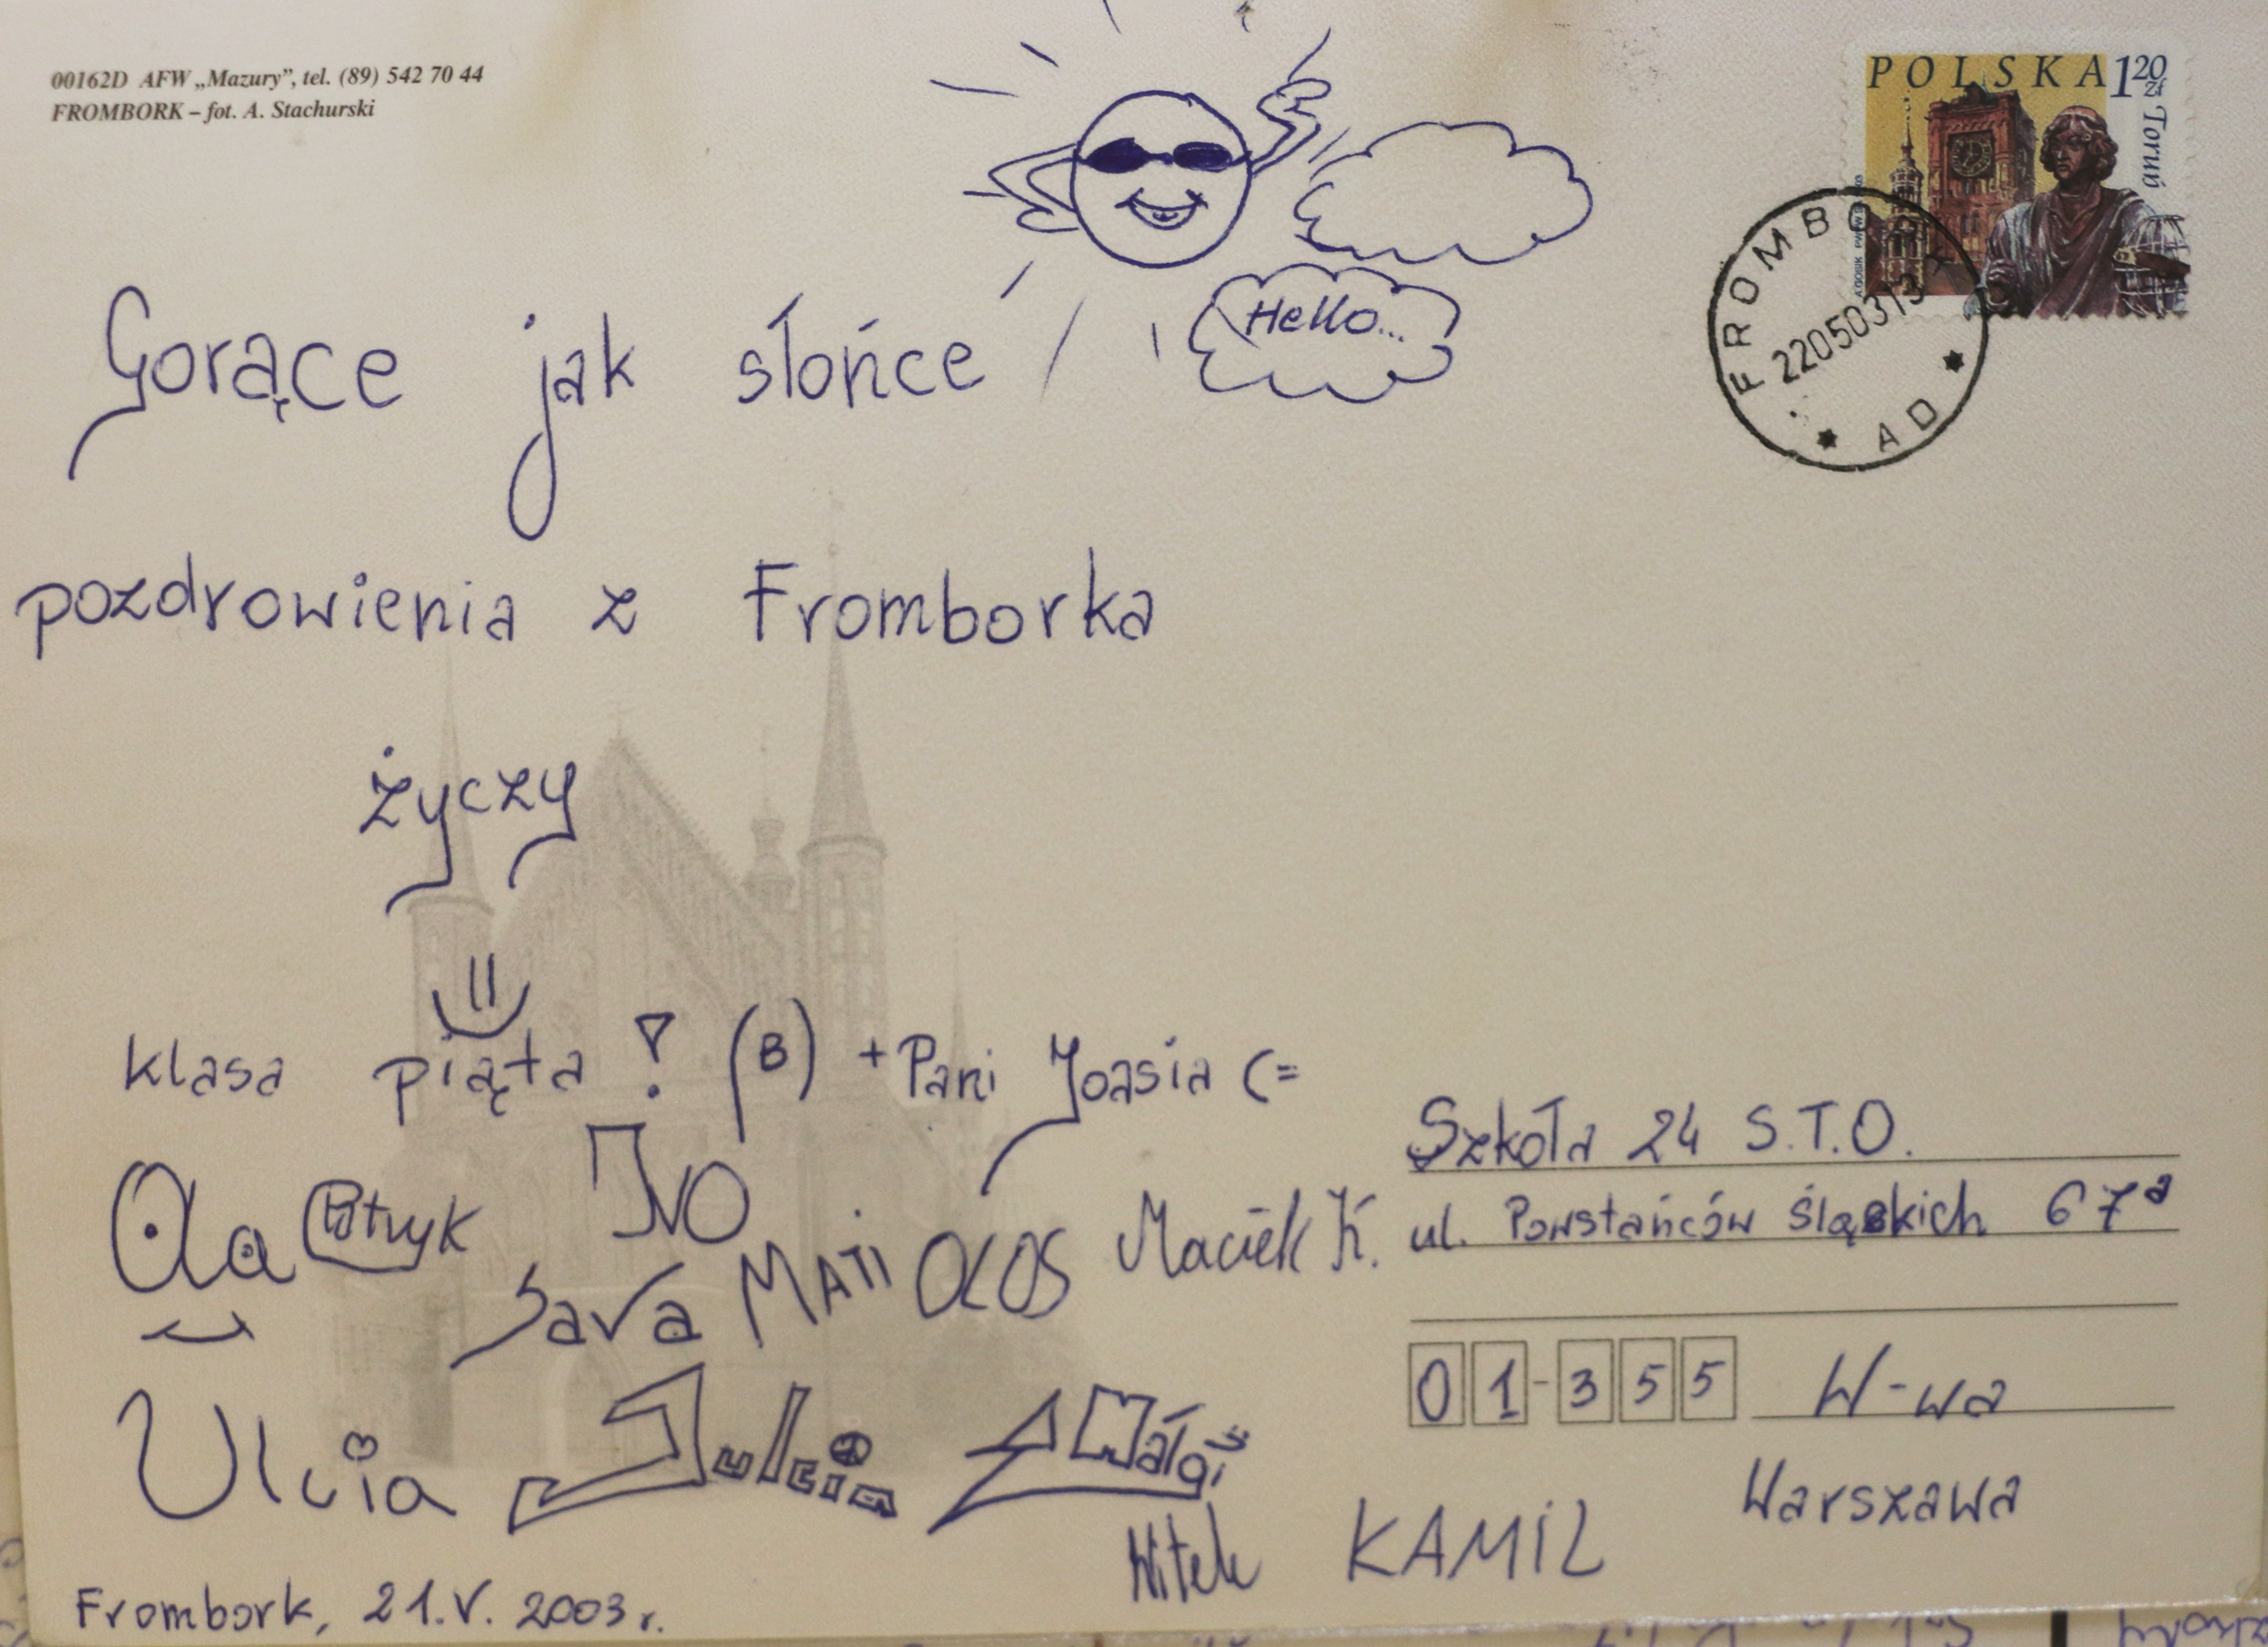 00162D AFW „Mazury”, tel. (89) 542 70 44
FROMBORK – fot. A. Stachurski
POLSKA 1 20 zł
Toruń
FROMBO
22050313
AD
Hello...
Gorące jak słońce
pozdrowienia z Fromborka
życzy
klasa piąta! (B) + Pani Joasia (=
Ola Patryk IVO
Sara MATI OLOS Maciek K.
Ulcia Julcia Małgi
Witek KAMIL
Frombork, 21.V. 2003 r.
Szkoła 24 S.T.O.
ul. Powstańców Śląskich 67a
01-355 W-wa
Warszawa